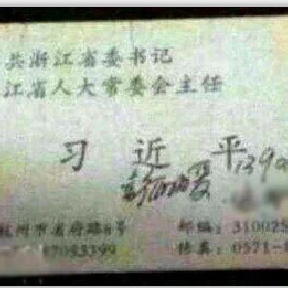 共浙江省委书记
江省人大常委会主任
习 近 平
州市省府路8号 邮编: 31002
传真: 0571-